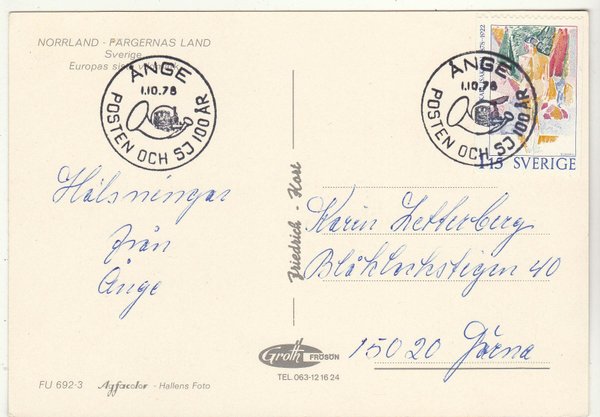 NORRLAND - FÄRGERNAS LAND
Sverige
Europas
ÅNGE
1.10.78
POSTEN OCH SJ 100 ÅR
ÅNGE
1.10.78
POSTEN OCH SJ 100 ÅR
1922
1.15 SVERIGE
Hälsningar
från
Ånge
Friedrich - Kort
Karin Zetterberg
Blåklockstigen 40
15020 Järna
Groth FRÖSÖN
TEL. 063-12 16 24
FU 692-3 Agfacolor - Hallens Foto